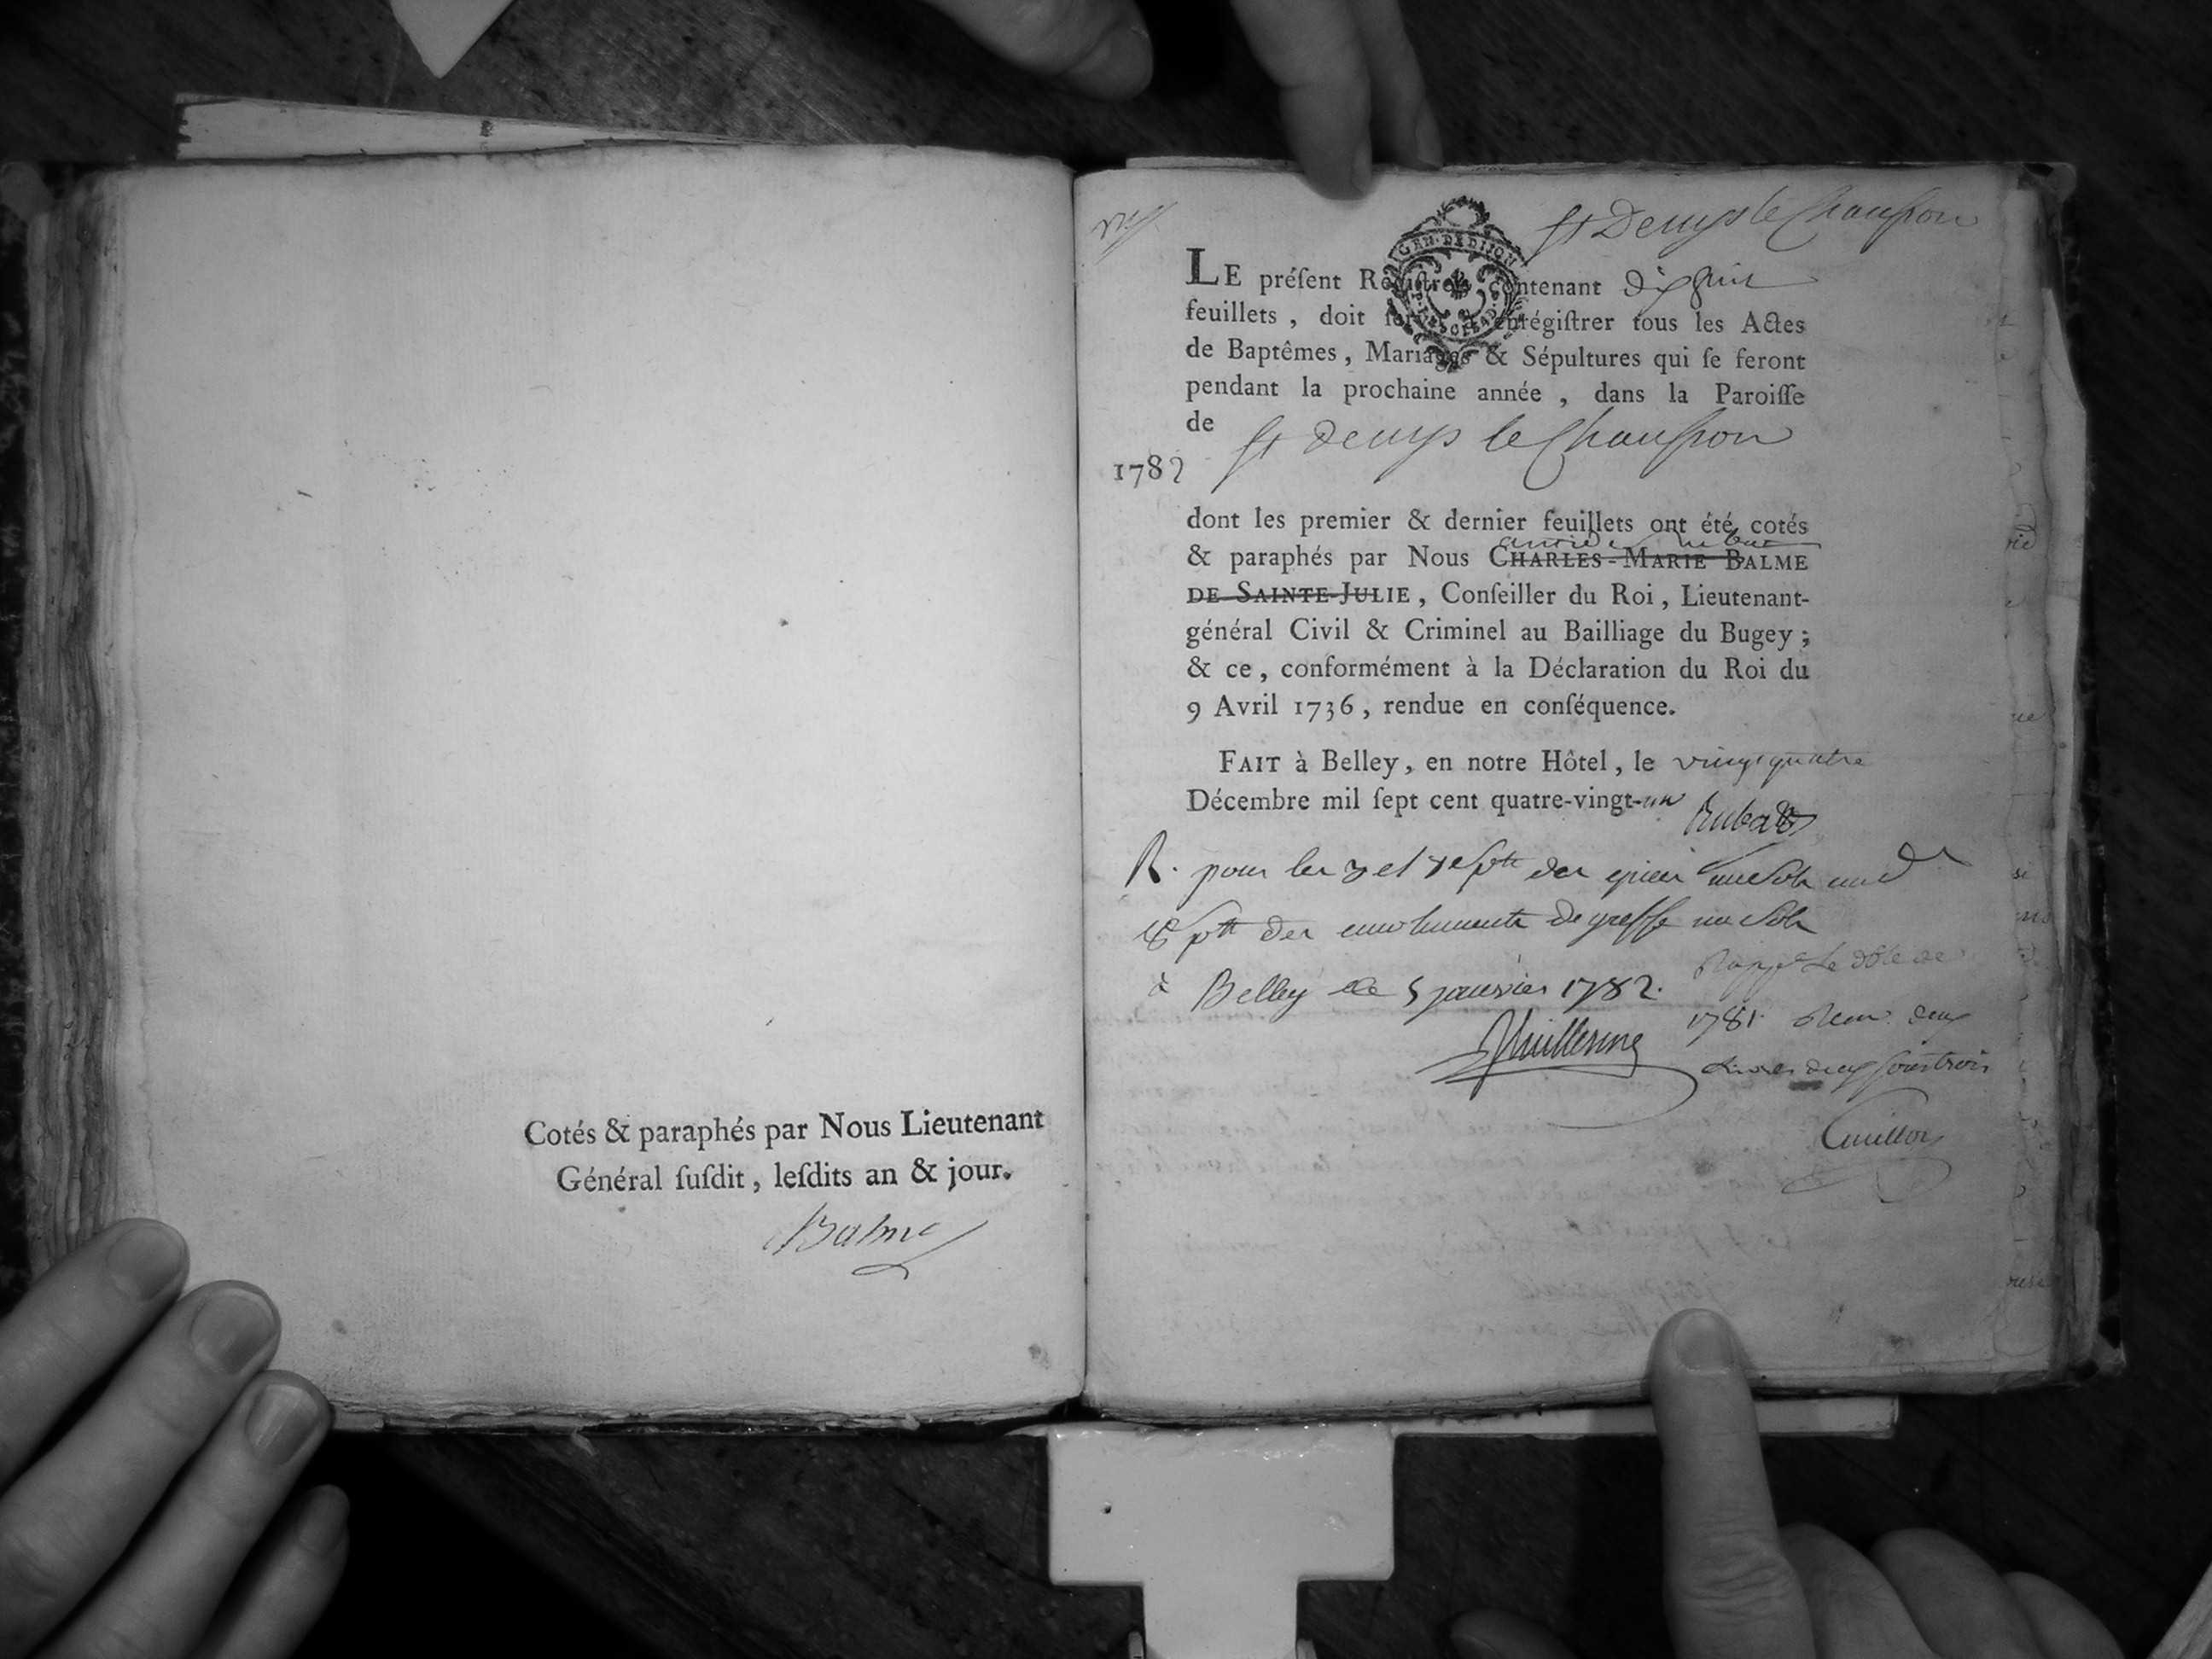 Cotés & paraphés par Nous Lieutenant
Général ſuſdit, leſdits an & jour.
Balme
St Denys le Chausson
GEN. DE DIJON
LE préſent Régiſtre contenant dix huit
feuillets, doit ſervir à enrégiſtrer tous les Actes
de Baptêmes, Mariages & Sépultures qui ſe feront
pendant la prochaine année, dans la Paroiſſe
de St Denys le Chausson
1782
dont les premier & dernier feuillets ont été cotés
& paraphés par Nous CHARLES-MARIE BALME
DE SAINTE-JULIE, Conſeiller du Roi, Lieutenant-
général Civil & Criminel au Bailliage du Bugey;
& ce, conformément à la Déclaration du Roi du
9 Avril 1736, rendue en conſéquence.
FAIT à Belley, en notre Hôtel, le vingt quatre
Décembre mil ſept cent quatre-vingt-un
Rubat
R. pour les 3 et
des emoluments de greffe un sols
à Belley le 5 janvier 1782.
Guillerme
1781
livres deux sous trois
Cuillon